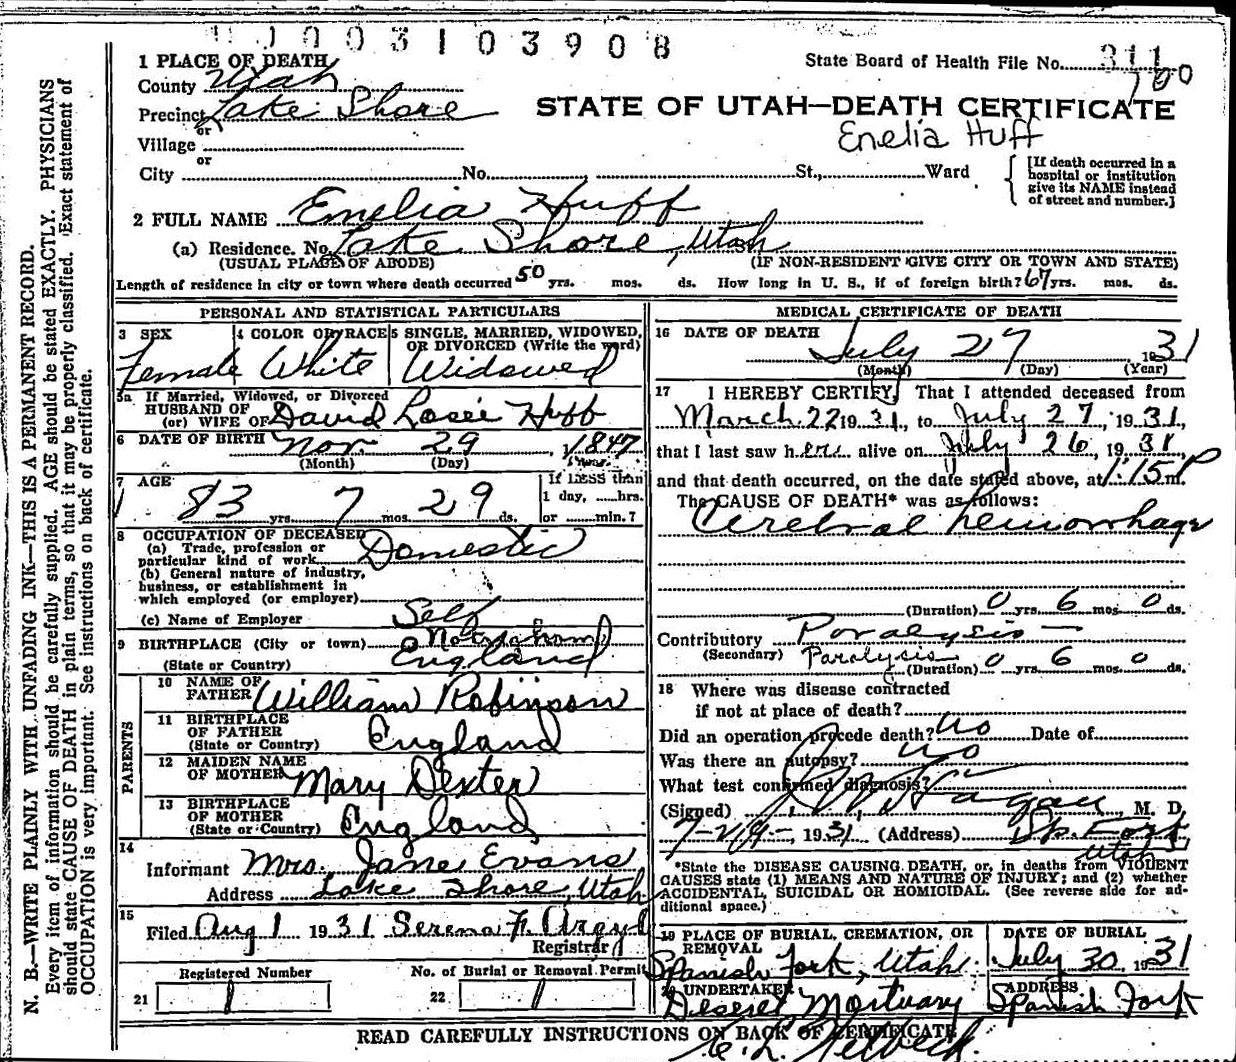 003103908
State Board of Health File No. 311
700
1 PLACE OF DEATH
County Utah
Precinct Lake Shore
or
Village
or
City No. St., Ward
STATE OF UTAH—DEATH CERTIFICATE
Emelia Huff
[If death occurred in a
hospital or institution
give its NAME instead
of street and number.]
2 FULL NAME Emelia Huff
(a) Residence. No. Lake Shore, Utah
(USUAL PLACE OF ABODE) (IF NON-RESIDENT GIVE CITY OR TOWN AND STATE)
Length of residence in city or town where death occurred 50 yrs. mos. ds. How long in U. S., if of foreign birth? 67 yrs. mos. ds.
PERSONAL AND STATISTICAL PARTICULARS
3 SEX 4 COLOR OR RACE 5 SINGLE, MARRIED, WIDOWED,
OR DIVORCED (Write the word)
Female White Widowed
5a If Married, Widowed, or Divorced
HUSBAND OF
(or) WIFE OF David Losee Huff
6 DATE OF BIRTH Nov. 29 1847
(Month) (Day) (Year)
7 AGE If LESS than
1 day, ......hrs.
83 yrs. 7 mos. 29 ds. or ......min.?
8 OCCUPATION OF DECEASED
(a) Trade, profession or
particular kind of work Domestic
(b) General nature of industry,
business, or establishment in
which employed (or employer)
(c) Name of Employer Self
9 BIRTHPLACE (City or town)
(State or Country) England
PARENTS
10 NAME OF
FATHER William Robinson
11 BIRTHPLACE
OF FATHER
(State or Country) England
12 MAIDEN NAME
OF MOTHER Mary Dexter
13 BIRTHPLACE
OF MOTHER
(State or Country) England
14
Informant Mrs. Jane Evans
Address Lake Shore, Utah
15
Filed Aug 1 1931 Serena F.
Registrar
Registered Number No. of Burial or Removal Permit
21 1 22 1
MEDICAL CERTIFICATE OF DEATH
16 DATE OF DEATH
July 27 1931
(Month) (Day) (Year)
17 I HEREBY CERTIFY, That I attended deceased from
March 22 1931, to July 27, 1931,
that I last saw her alive on July 26, 1931,
and that death occurred, on the date stated above, at 1:15 P m.
The CAUSE OF DEATH* was as follows:
Cerebral hemorrhage
(Duration) 0 yrs. 6 mos. 0 ds.
Contributory Paralysis
(Secondary) Paralysis (Duration) 0 yrs. 6 mos. 0 ds.
18 Where was disease contracted
if not at place of death?
Did an operation precede death? no Date of
Was there an autopsy? no
What test confirmed diagnosis?
(Signed) Hagan M. D.
7-29-, 1931 (Address) Sp. Fork,
Utah
*State the DISEASE CAUSING DEATH, or, in deaths from VIOLENT
CAUSES state (1) MEANS AND NATURE OF INJURY; and (2) whether
ACCIDENTAL, SUICIDAL OR HOMICIDAL. (See reverse side for ad-
ditional space.)
19 PLACE OF BURIAL, CREMATION, OR
REMOVAL
Spanish Fork, Utah
DATE OF BURIAL
July 30, 1931
20 UNDERTAKER
Deseret Mortuary
ADDRESS
Spanish Fork
READ CAREFULLY INSTRUCTIONS ON BACK OF CERTIFICATE
N. B.—WRITE PLAINLY WITH UNFADING INK—THIS IS A PERMANENT RECORD.
Every item of information should be carefully supplied. AGE should be stated EXACTLY. PHYSICIANS
should state CAUSE OF DEATH in plain terms, so that it may be properly classified. Exact statement of
OCCUPATION is very important. See instructions on back of certificate.